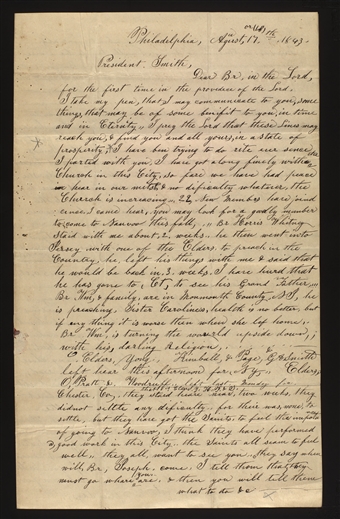 or 18th
Philadelphia, Agust, 17. 1843.
President Smith,
Dear Br, in the Lord,
for the first time in the providence of the Lord.
I take my pen, that I may communicate to you, some
things, that may be of some binifit to you, in time
and in Eternity. I pray the Lord that these lines may
reach you, & find you and all yours, in a state of
prosperity, I have ben trying to do rite ever since
I parted with you, I have got along finely with the
Church in this City, so fare we have had peace
in hear in our & no difcualty whatever, the
Church is increacing, 26 New Members have
since I come hear, you may look for a goodly number
to come to Nauvoo this fall, Br Norris Whitney
Staid with me about 2, weeks. he then went into
Jersey with one of the Elders to preach in the
Country, he left his things with me & said that
he would be back in 3 weeks. I have herd that
he has gone to, Ct, to see his Grand Father,
Br Wm, & family, are in Monmouth County N.J, he
is preaching, Sister Carolines, health is no better, but
if any thing it is worse then when she left home,
Br Wm, is turning the world upside down,
with his, darling Religion,
Elders, Young, Kimball, & Page, G. A. Smith
left hear this afternoon for, N.Y., Elders,
O, Pratt & Woodruff,
Chester, Co, they staid hear near, two weeks, they
did not settle any difcualty, for their was none to
settle, but they have got the Saints, to feel the
of going to Nauvoo, I think they have performed
a good work in this City. the Saints all seam to feel
well, they all, want to see you, they say when
will, Br, Joseph, come, I tell them that they
must go where you are, & then you will tell them
what to do &c